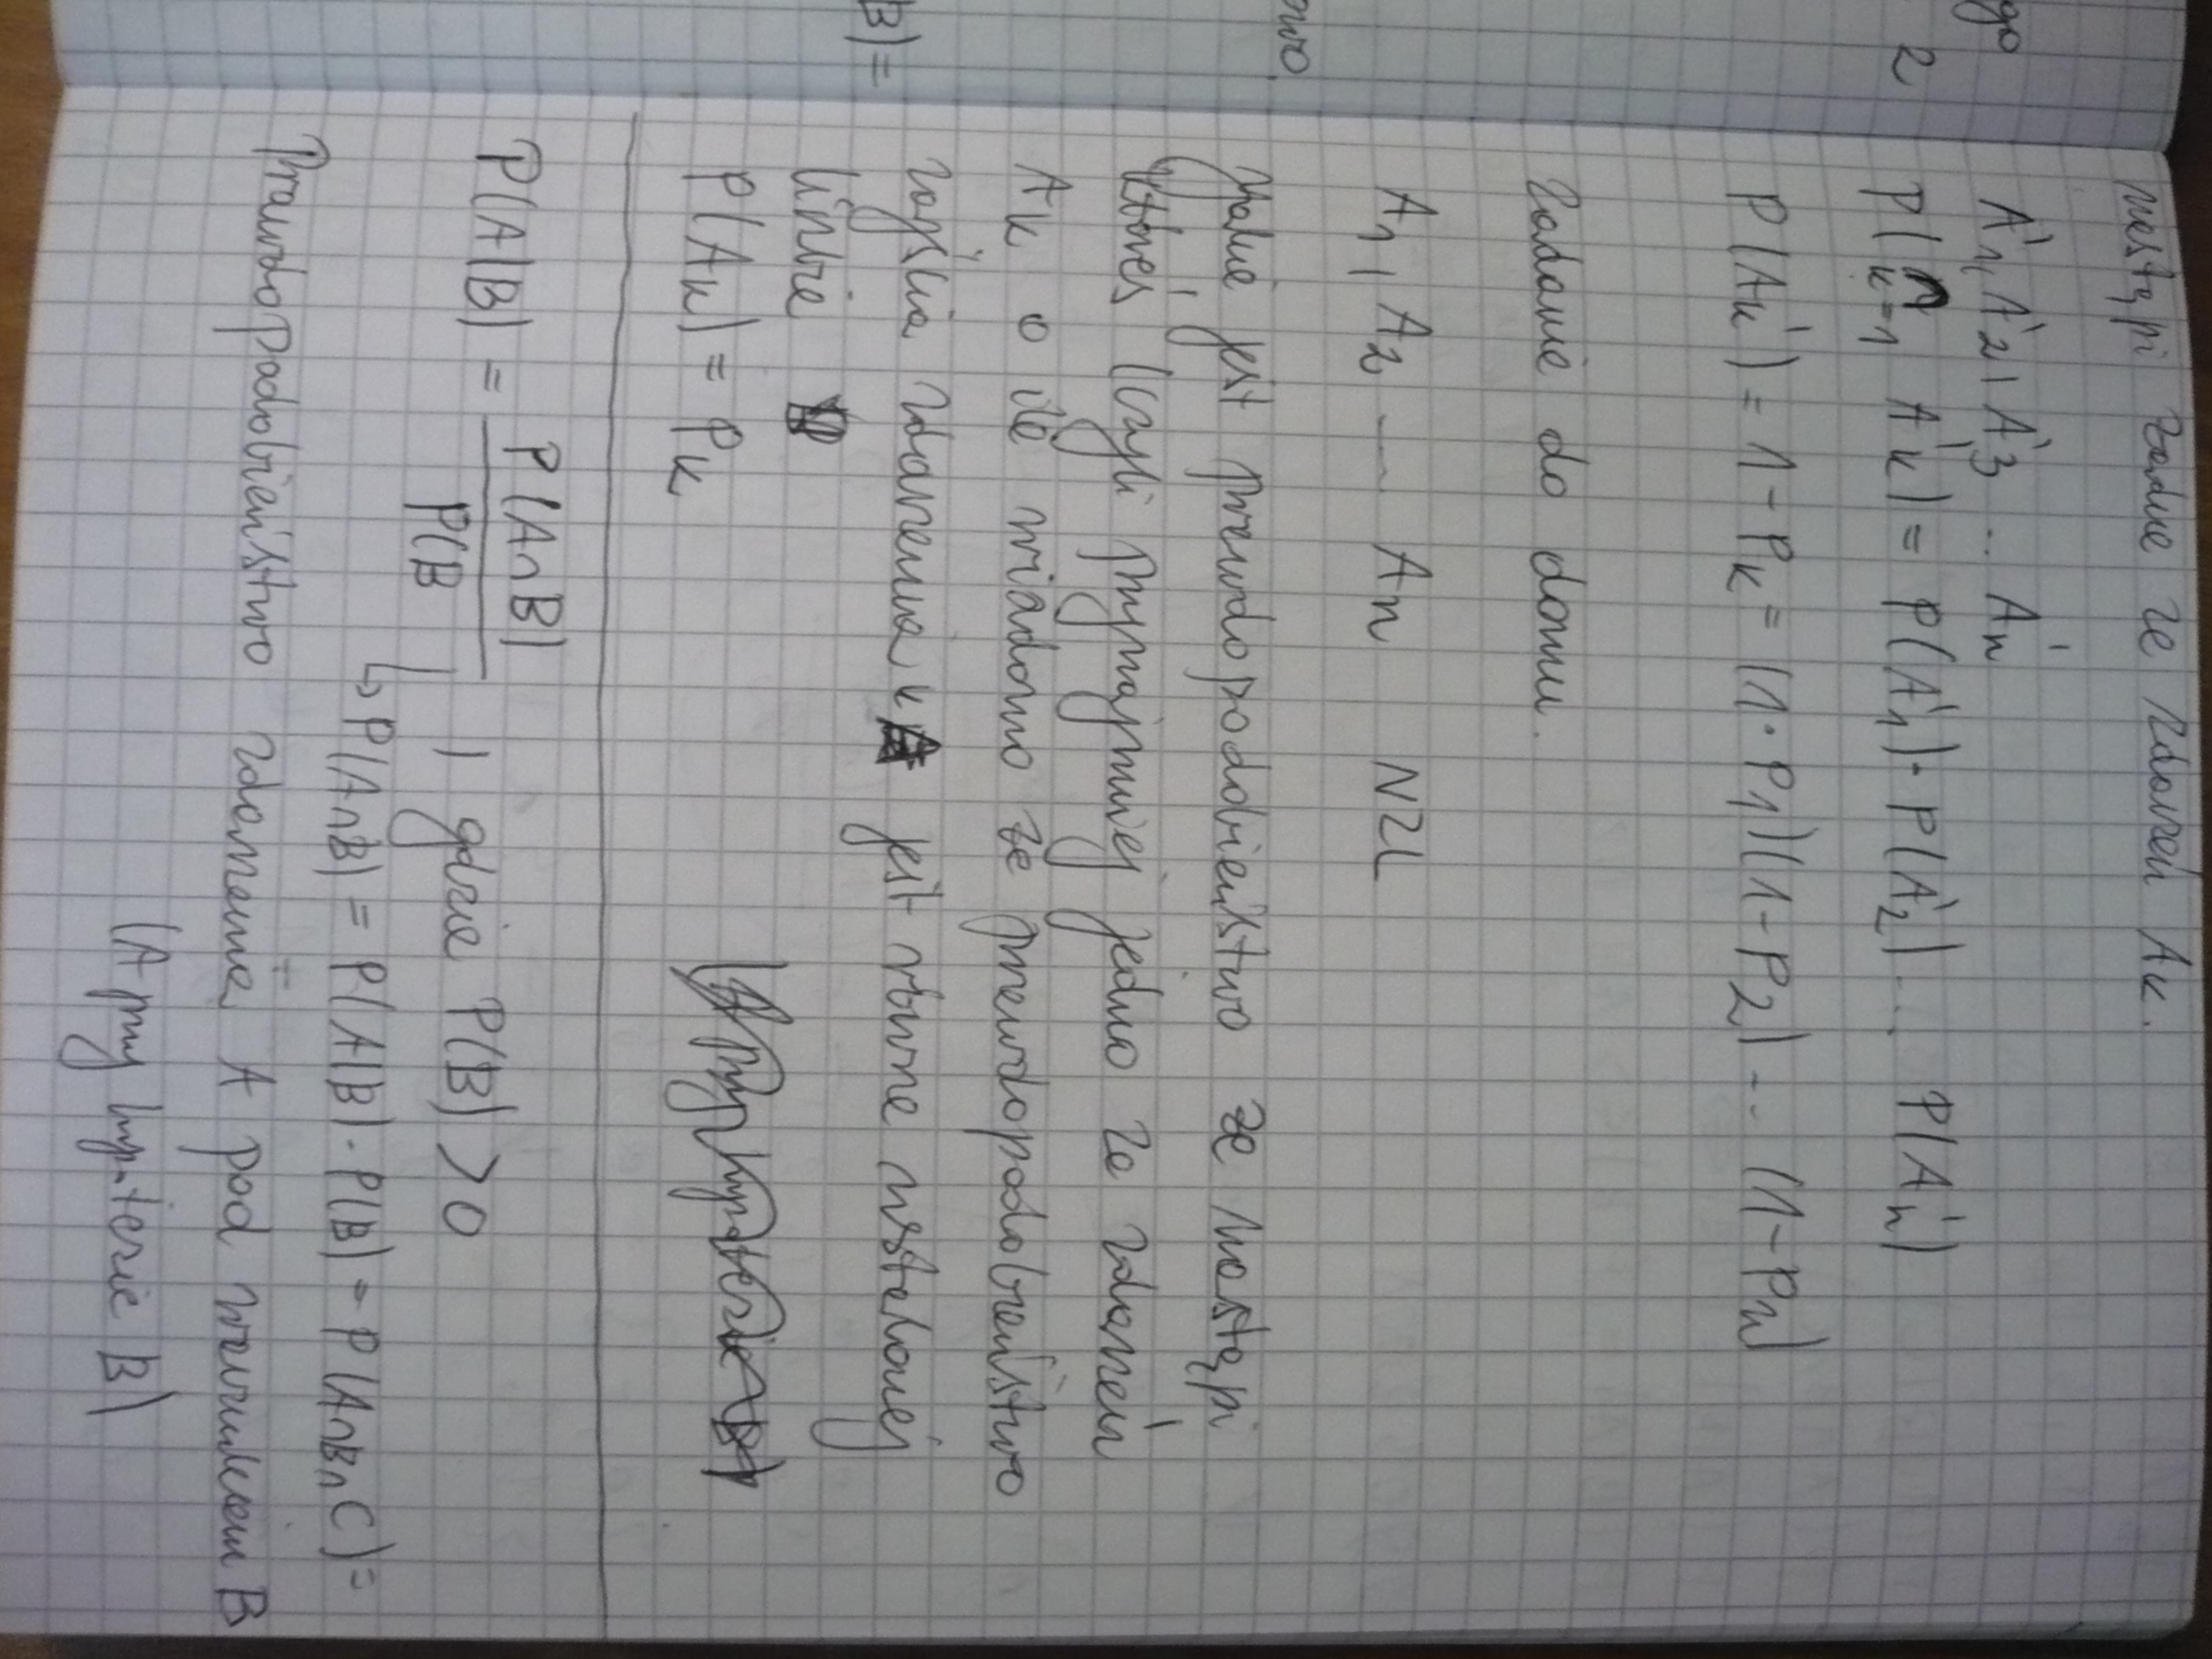 go
2
owo.
B) =
nastąpi żadne ze zdarzeń Ak.
A'1, A'2, A'3 ... A'n
P(∩ k=1 A'k) = P(A'1) · P(A'2) ... P(A'n)
P(Ak') = 1 - Pk = (1 · P1)(1 - P2) ... (1 - Pn)
Zadanie do domu.
A1, A2 ... An NZL
Jakie jest prawdopodobieństwo że nastąpi
któreś (czyli przynajmniej jedno ze zdarzeń
Ak o ile wiadomo że prawdopodobieństwo
zajścia zdarzenia k jest równe ustalonej
liczbie
P(Ak) = Pk
P(A|B) = P(A∩B) / P(B) , gdzie P(B) > 0
↳ P(A∩B) = P(A|B) · P(B) = P(A∩B∩C) =
Prawdopodobieństwo zdarzenia A pod warunkiem B
(A przy hipotezie B)